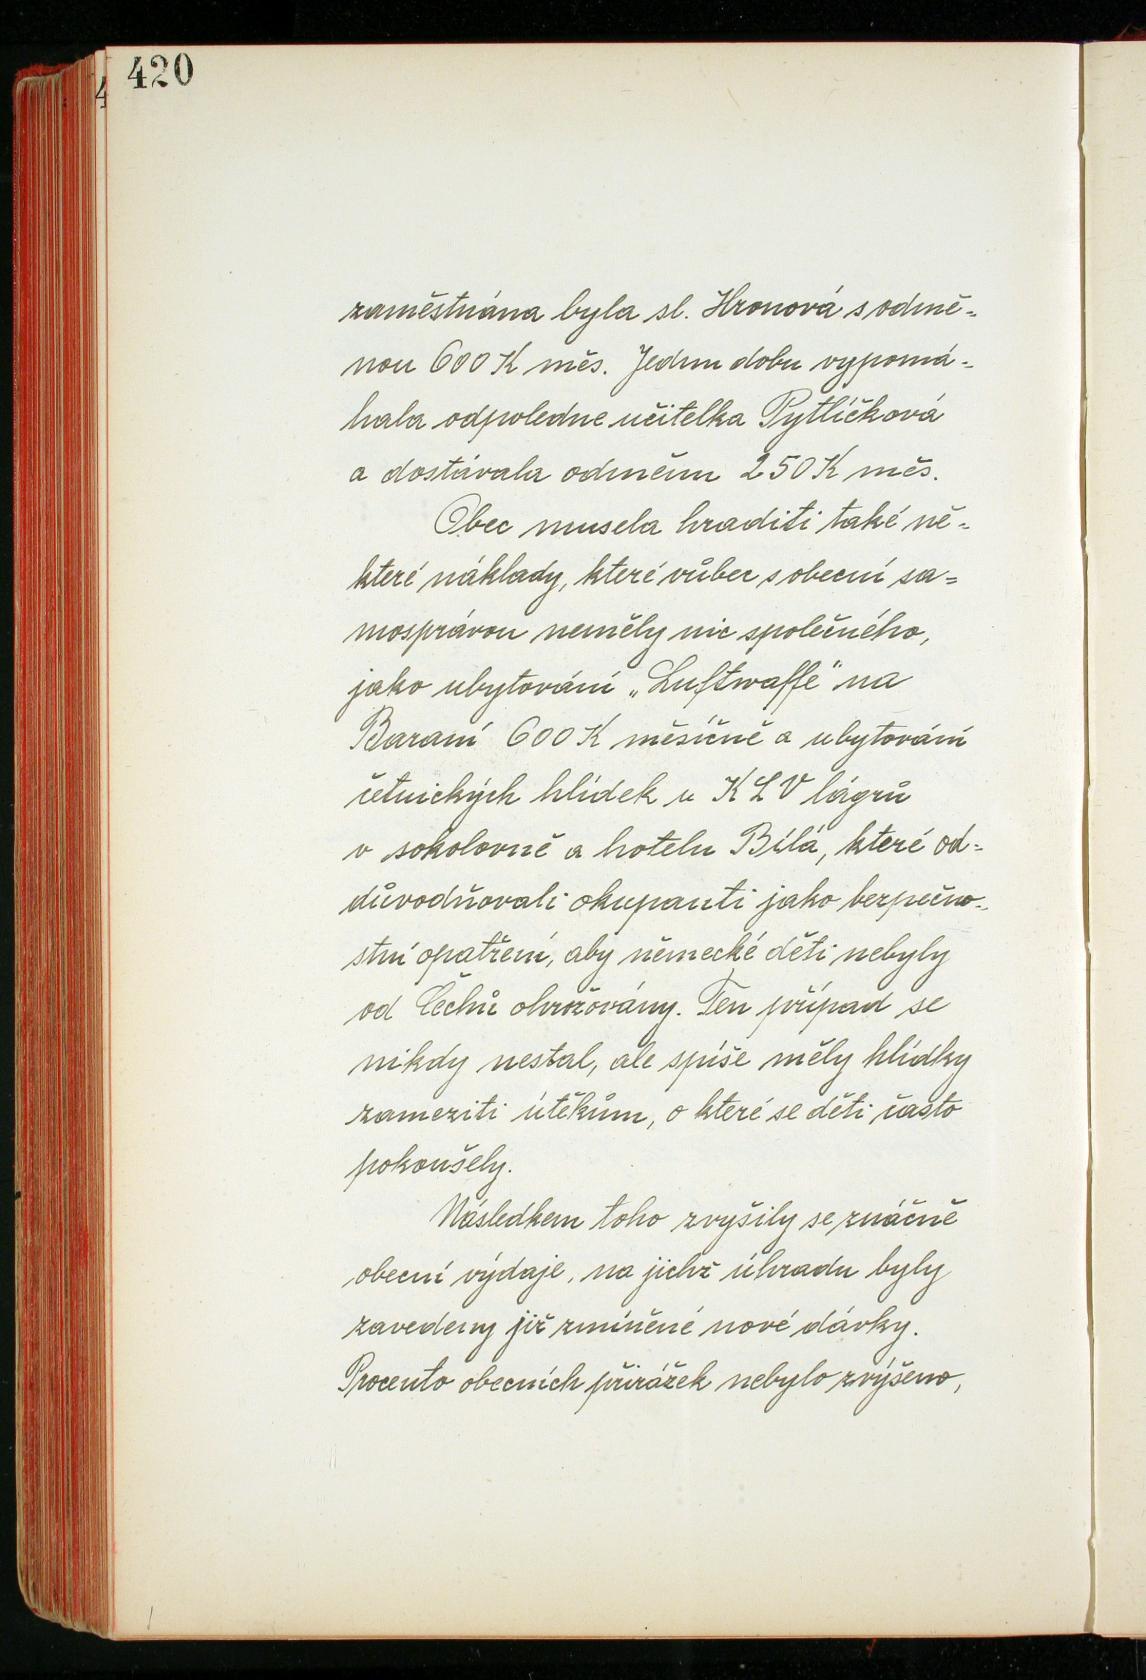 420
zaměstnána byla sl. Hronová s odmě-
nou 600 K měs. Jednu dobu vypomá-
hala odpoledne učitelka Pytlíčková
a dostávala odměnu 250 K měs.
Obec musela hraditi také ně-
které náklady, které vůbec s obecní sa-
mosprávou neměly nic společného,
jako ubytování „Luftwaffe" na
Baraní 600 K měsíčně a ubytování
četnických hlídek u KLV lágrů
v sokolovně a hotelu Bílá, které od-
důvodňovali okupanti jako bezpečno-
stní opatření, aby německé děti nebyly
od Čechů ohrožovány. Ten případ se
nikdy nestal, ale spíše měly hlídky
zameziti útěkům, o které se děti často
pokoušely.
Následkem toho zvýšily se značně
obecní výdaje, na jichž úhradu byly
zavedeny již zmíněné nové dávky.
Procento obecních přirážek nebylo zvýšeno,